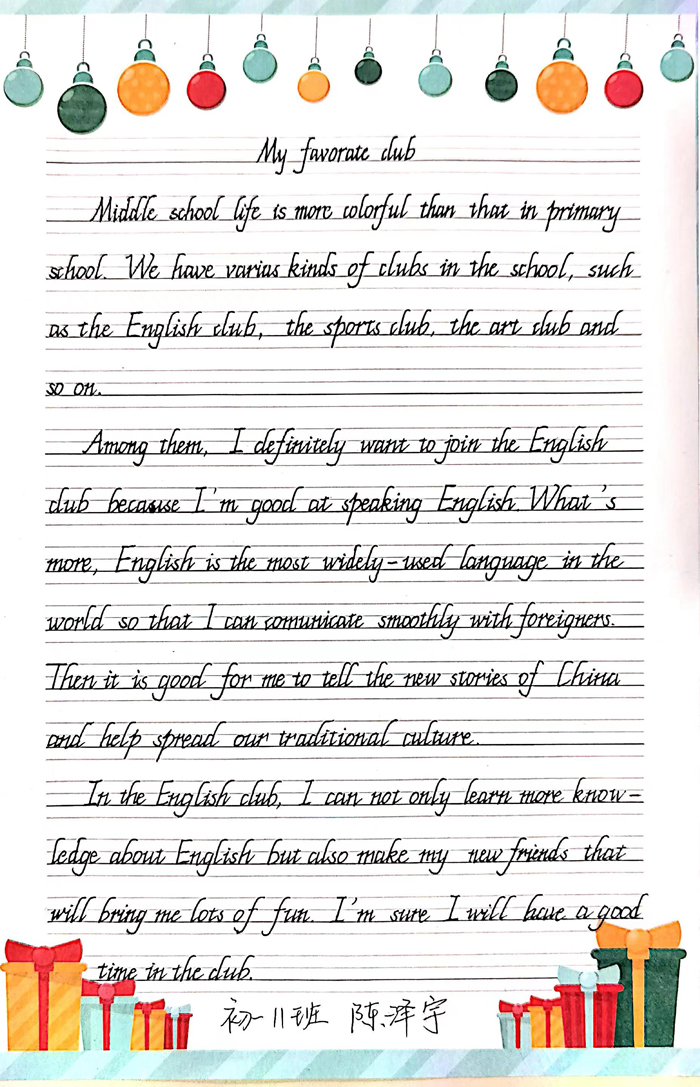 My favorate club
Middle school life is more colorful than that in primary
school. We have varius kinds of clubs in the school, such
as the English club, the sports club, the art club and
so on.
Among them, I definitely want to join the English
club because I'm good at speaking English. What's
more, English is the most widely-used language in the
world so that I can comunicate smoothly with foreigners.
Then it is good for me to tell the new stories of China
and help spread our traditional culture.
In the English club, I can not only learn more know-
ledge about English but also make my new friends that
will bring me lots of fun. I'm sure I will have a good
time in the club.
初一11班 陈泽宇